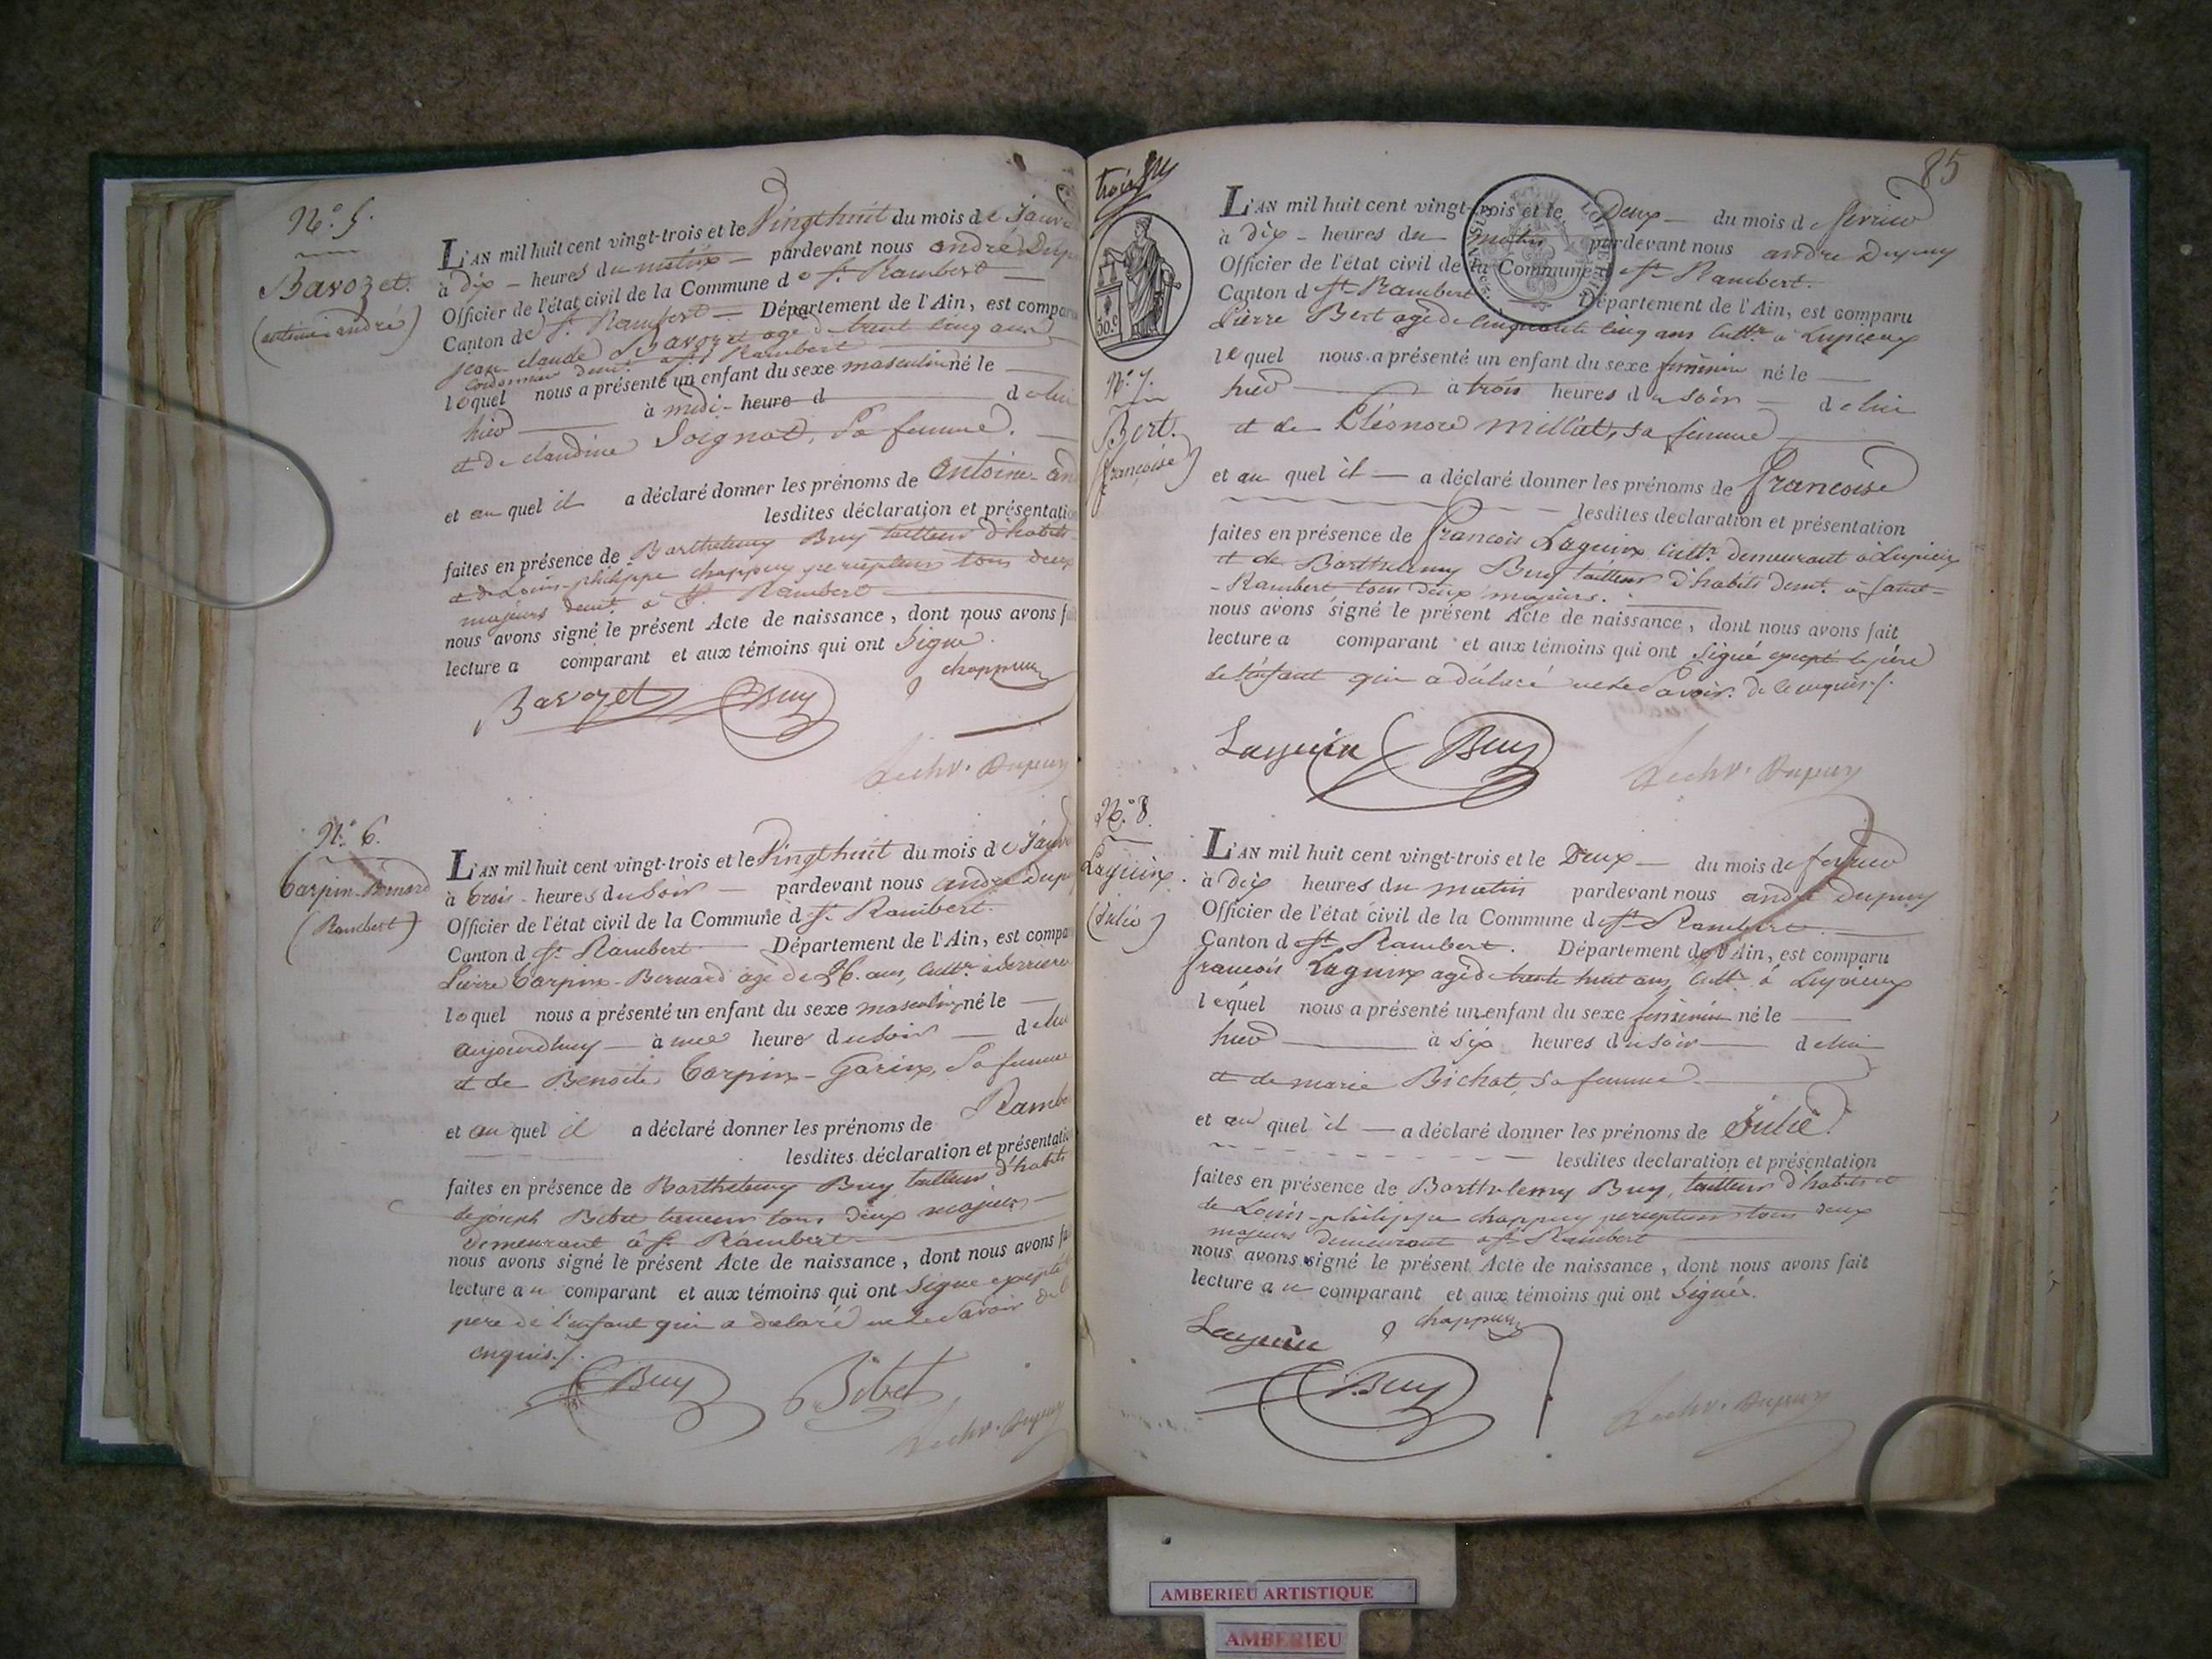 N.° 5.
Bavozet.
(antoine andré)
L'AN mil huit cent vingt-trois et le Vingt huit du mois de Janv
à dix - heures du matin — pardevant nous andré Dupu
Officier de l'état civil de la Commune de St. Rambert —
Canton de St. Rambert — Département de l'Ain, est compar
jean claude Bavozet agé de trente cinq ans
cordonnier demt. a St. Rambert
lequel nous a présenté un enfant du sexe masculin né le —
hier — à midi - heure d — de lui
et de claudine Soignat, Sa femme. —
et au quel il a déclaré donner les prénoms de Antoine - an
lesdites déclaration et présentatio
faites en présence de Barthelemy Buy tailleur d'habits
et de Louis-philippe chappuy percepteur tous deux
majeurs demt. a St. Rambert —
nous avons signé le présent Acte de naissance, dont nous avons f
lecture a comparant et aux témoins qui ont Signé.
chappuy
Bavozet Buy
Dupuy
N.° 6.
Carpin-Bernard
(Rambert)
L'AN mil huit cent vingt-trois et le Vingt huit du mois de Janv
à trois - heures du Soir — pardevant nous andré Dupu
Officier de l'état civil de la Commune d St. Rambert.
Canton d St. Rambert — Département de l'Ain, est compa
Pierre Carpin-Bernard agé de 26. ans, cultr.
lequel nous a présenté un enfant du sexe masculin né le —
aujourdhuy — à une heure du Soir — de lui
et de Benoite Carpin-Garin, Sa femme
et au quel il a déclaré donner les prénoms de Rambe
lesdites déclaration et présentatio
faites en présence de Barthelemy Buy, tailleur d'habits
de joseph Bibet tous deux majeurs —
demeurant à St. Rambert —
nous avons signé le présent Acte de naissance, dont nous avons fa
lecture au comparant et aux témoins qui ont Signé excepté
pere de l'enfant qui a déclaré ne le Savoir de
enquis./.
Buy Bibet
Dupuy
85
trois
30.c
N.° 7.
Bert.
(françoise)
L'AN mil huit cent vingt-trois et le Deux — du mois d fevrier
à dix - heures du — matin pardevant nous andré Dupuy
Officier de l'état civil de la Commune d St. Rambert.
Canton d St. Rambert Département de l'Ain, est comparu
Pierre Bert agé de cinquante cinq ans cultr. à Lupieux
lequel nous a présenté un enfant du sexe feminin né le —
hier — à trois heures du Soir — de lui
et de Eléonore millat, sa femme
et au quel il — a déclaré donner les prénoms de françoise
lesdites declaration et présentation
faites en présence de francois Laguin cultr. demeurant à Lupieux
et de Barthelemy Buy tailleur d'habits demt. à Saint-
-Rambert tous deux majeurs.
nous avons signé le présent Acte de naissance, dont nous avons fait
lecture a comparant et aux témoins qui ont Signé excepté le père
de l'enfant qui a déclaré ne le Savoir. de ce enquis./.
Laguin Buy
Dupuy
N.° 8.
Laguin.
(Julie)
L'AN mil huit cent vingt-trois et le Deux — du mois de fevrier
à dix heures du matin pardevant nous andré Dupuy
Officier de l'état civil de la Commune d St. Rambert. —
Canton d St. Rambert. Département de l'Ain, est comparu
francois Laguin agé de trente huit ans, cultr. à Lupieux
lequel nous a présenté un enfant du sexe feminin né le —
hier — à Six heures du Soir — de lui
et de marie Bichat, sa femme. —
et au quel il — a déclaré donner les prénoms de Julie.
lesdites declaration et présentation
faites en présence de Barthelemy Buy, tailleur d'habits et
de Louis-philippe chappuy percepteur tous deux
majeurs demeurant a St. Rambert
nous avons signé le présent Acte de naissance, dont nous avons fait
lecture au comparant et aux témoins qui ont Signé.
Laguin chappuy
Buy
Dupuy
AMBERIEU ARTISTIQUE
AMBERIEU